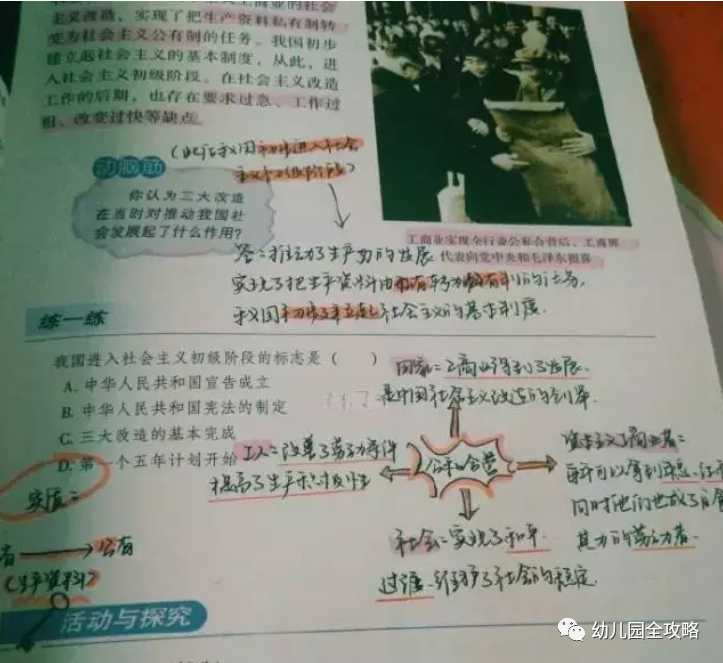 主义改造，实现了把生产资料私有制转
变为社会主义公有制的任务。我国初步
建立起社会主义的基本制度，从此，进
入社会主义初级阶段。在社会主义改造
工作的后期，也存在要求过急、工作过
粗、改变过快等缺点。
(此后我国初步进入社会
主义初级阶段)
动脑筋
你认为三大改造
在当时对推动我国社
会发展起了什么作用?
工商业实现全行业公私合营后，工商界
代表向党中央和毛泽东报喜
答：推动了生产力的发展
实现了把生产资料由私有转为
我国初步建立起社会主义的基本制度.
练一练
我国进入社会主义初级阶段的标志是（　　）
A. 中华人民共和国宣告成立
B. 中华人民共和国宪法的制定
C. 三大改造的基本完成
D. 第一个五年计划开始
国家：工商业得到了发展.
是中国社会主义改造的创举.
工人：改善了劳动条件
提高了生产积极性
公私合营
资本主义工商业者：
同时他们也成了自食
其力的劳动者.
社会：实现了和平
过渡.维护了社会的稳定.
实质：
公有
(生产资料)
活动与探究
幼儿园全攻略